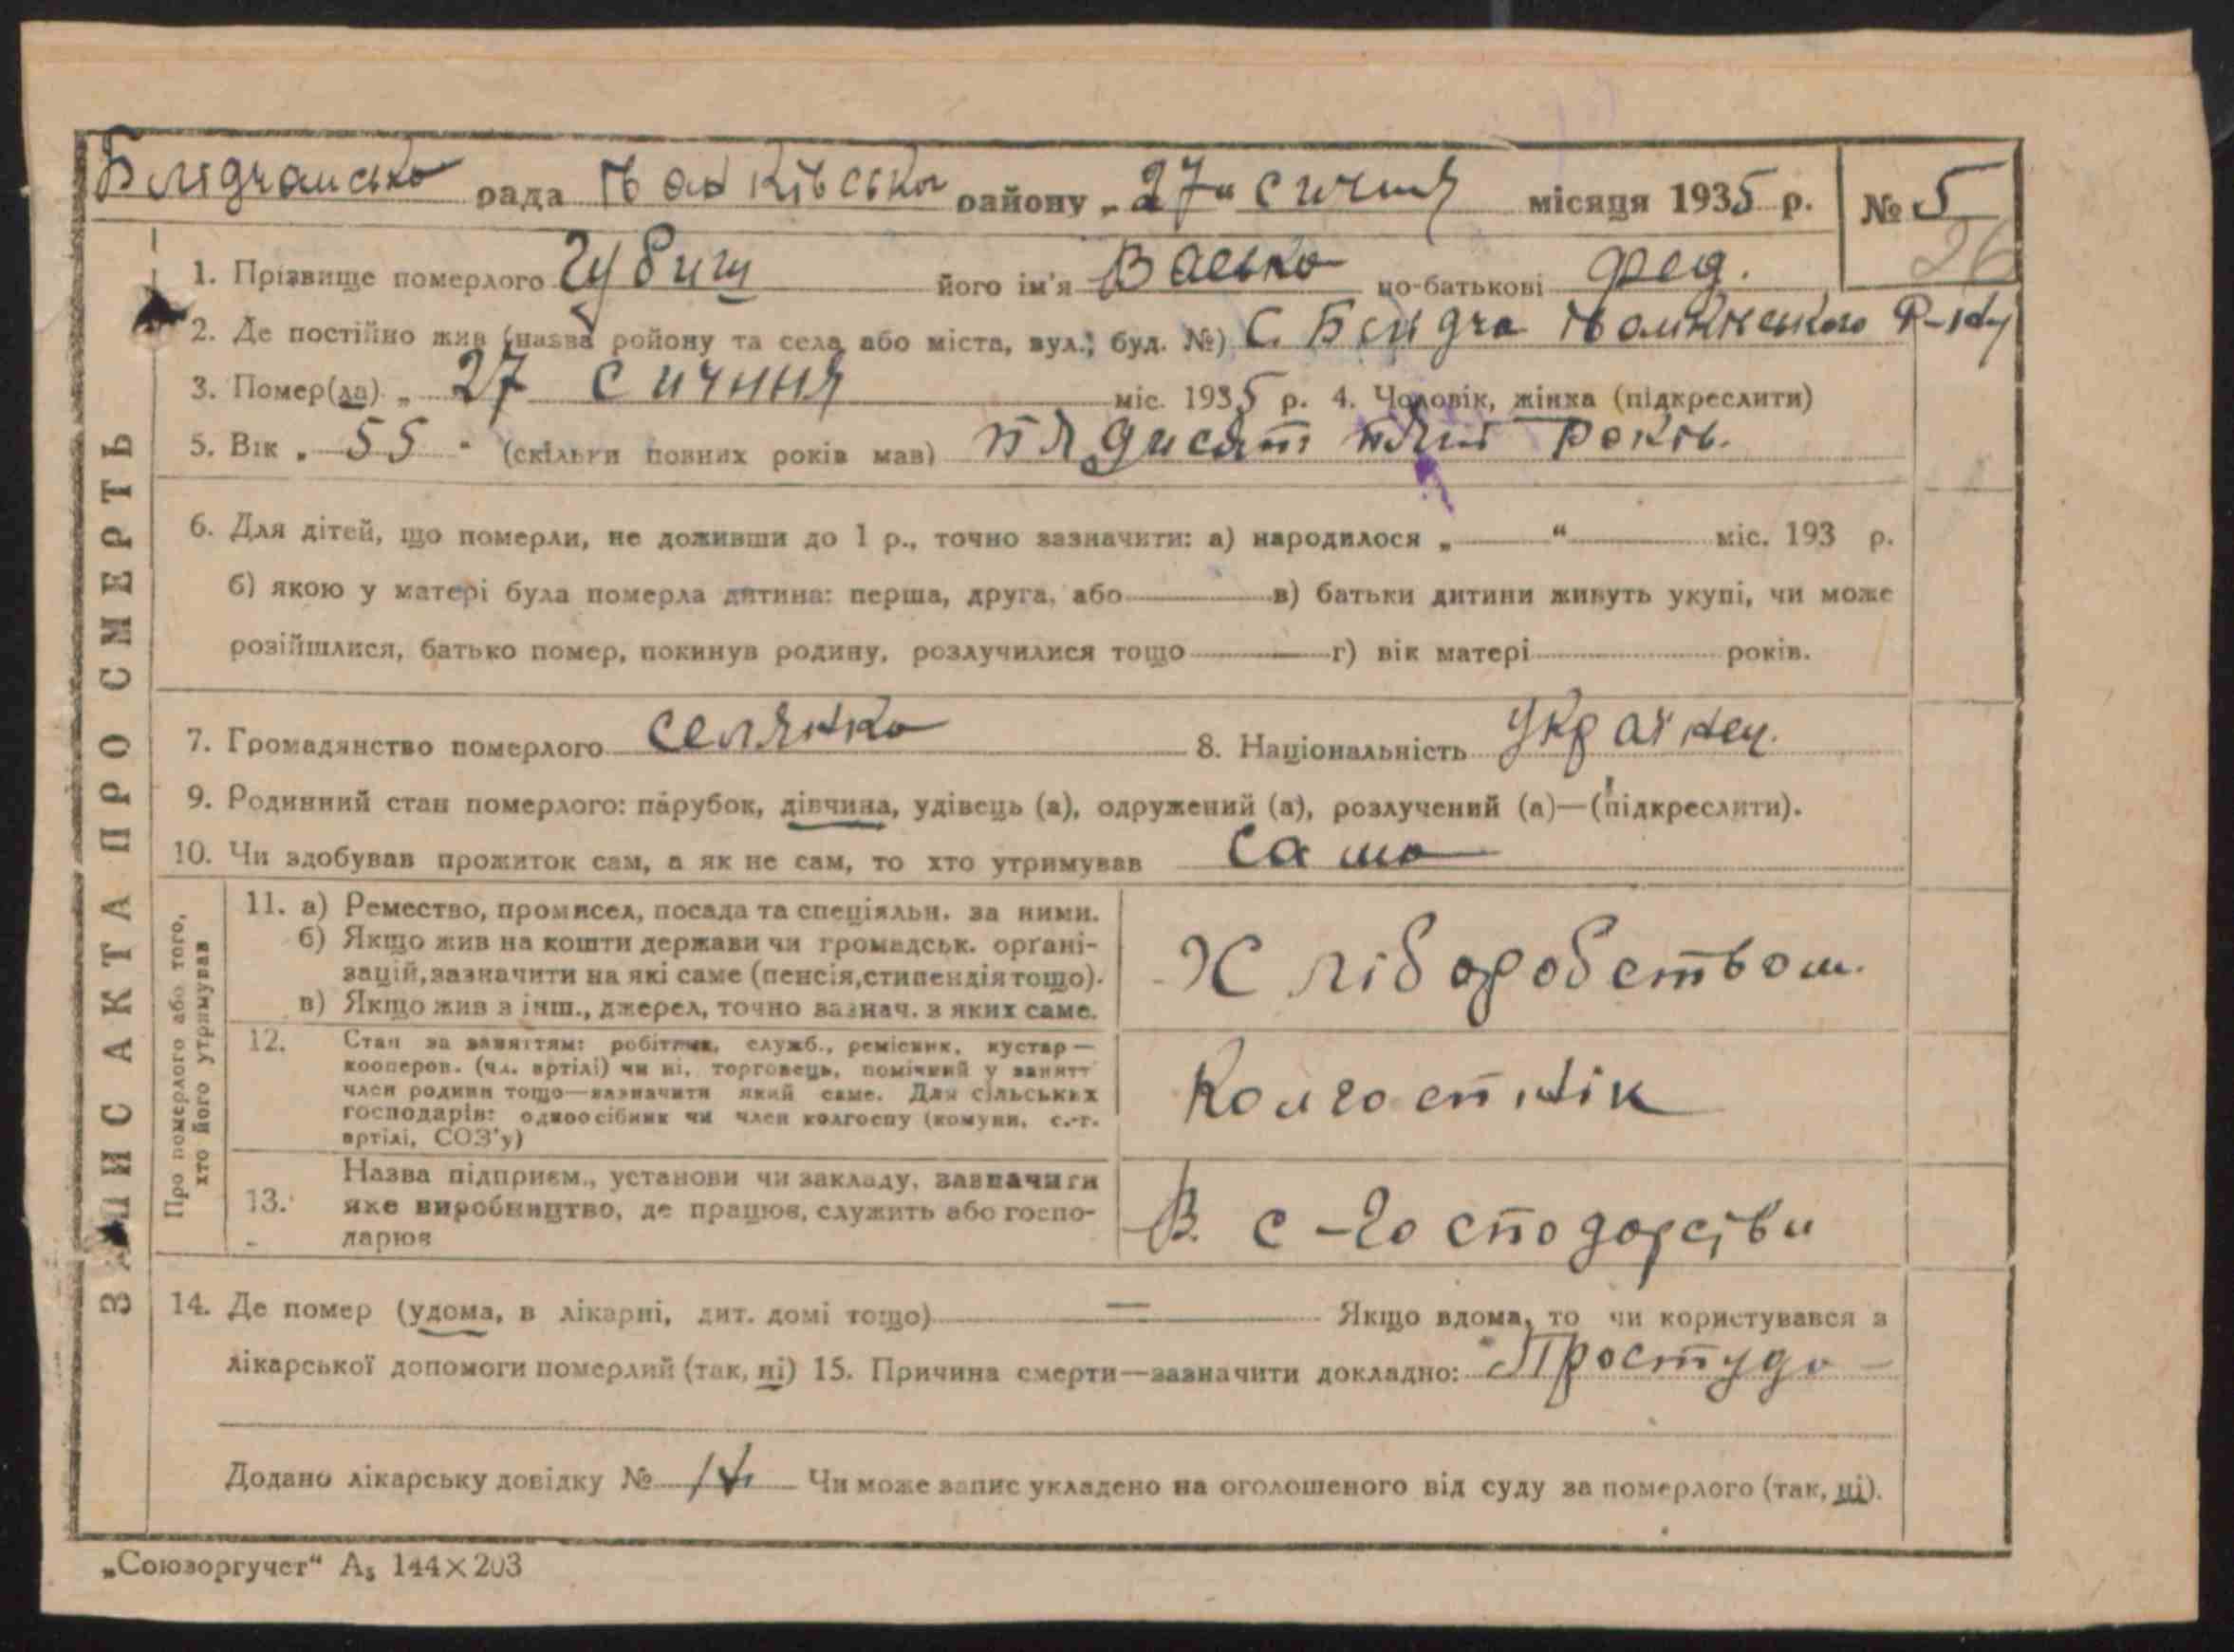 Блідчанська рада Іванківська району „27“ січня місяця 1935 р. № 5
26
1. Прізвище померлого його ім'я Васько по-батькові Фед.
2. Де постійно жив (назва ройону та села або міста, вул.; буд. №) С. Блідча Іванківського Р-ну
3. Помер(ла) „ 27 сичння міс. 1935 р. 4. Чоловік, жінка (підкреслити)
5. Вік „ 55 " (скільки повних років мав) пядисят пять років.
6. Для дітей, що померли, не доживши до 1 р., точно зазначити: а) народилося „ — “ — міс. 193 р.
б) якою у матері була померла дитина: перша, друга, або — в) батьки дитини живуть укупі, чи може
розійшлися, батько помер, покинув родину, розлучилися тощо — г) вік матері років.
7. Громадянство померлого селянка 8. Національність Україн.
9. Родинний стан померлого: парубок, дівчина, удівець (а), одружений (а), розлучений (а)—(підкреслити).
10. Чи здобував прожиток сам, а як не сам, то хто утримував сама
ЗАПИС АКТА ПРО СМЕРТЬ
Про померлого або того, хто його утримував
11. а) Ремество, промисел, посада та спеціяльн. за ними.
б) Якщо жив на кошти держави чи громадськ. орґані-
зацій, зазначити на які саме (пенсія, стипендія тощо).
в) Якщо жив з інш., джерел, точно зазнач. з яких саме.
Хліборобством.
12. Стан за заняттям: робітник, служб., ремісник, кустар—
кооперов. (чл. артілі) чи ні, торговець, помічний у занятт
член родини тощо—зазначити який саме. Для сільських
господарів: одноосібник чи член колгоспу (комуни, с.-г.
артілі, СОЗ'у)
Колгоспнік
13. Назва підприєм., установи чи закладу, зазначити
яке виробництво, де працюв, служить або госпо-
дарюв
В. с-господарстви
14. Де помер (удома, в лікарні, дит. домі тощо) — Якщо вдома, то чи користувався з
лікарської допомоги померлий (так, ні) 15. Причина смерти—зазначити докладно: Простуда —
Додано лікарську довідку № Чи може запис укладено на оголошеного від суду за померлого (так, ні).
„Союзоргучет“ А₅ 144×203